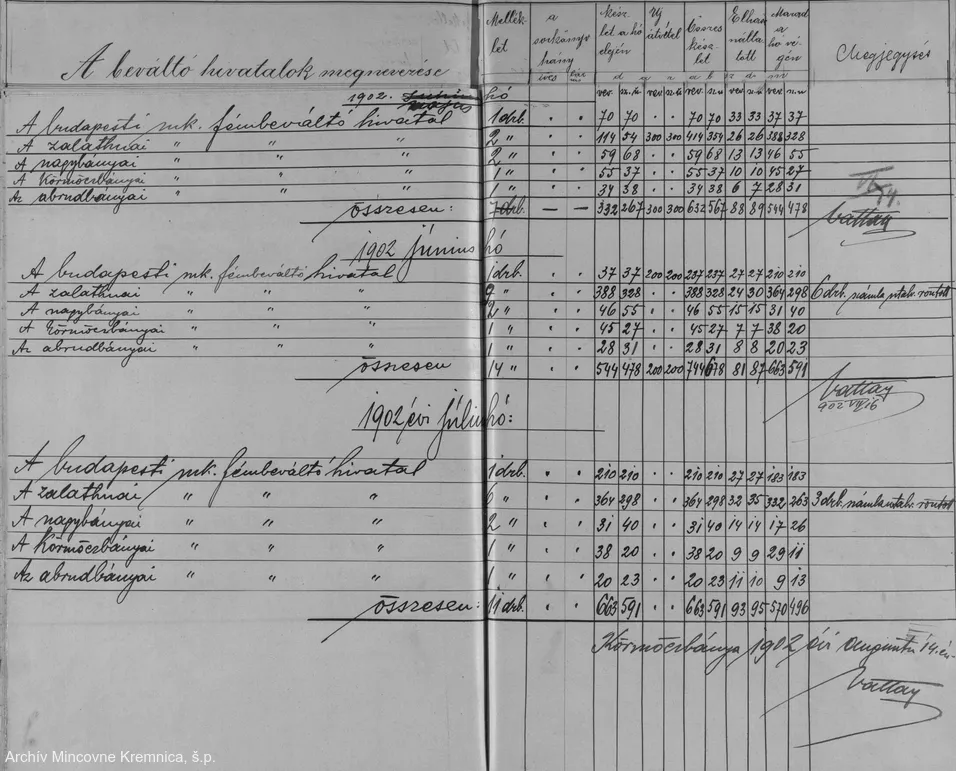 A beváltó hivatalok megnevezése Mellék a kész Uj Összes Elhas Marad Megjegyzés
let sorkönyv let a hó ütettel kész nálta a
hány elején let tott hó vé
gén
ives
d a r a b s z á m
1902. május hó ver. sz.u ver sz.u ver. sz.u ver d.u ver sz.u
A budapesti mk. fémbeváltó hivatal 1 drb. " " 70 70 . . 70 70 33 33 37 37
A zalathnai " " " 2 " " " 114 54 300 300 414 354 26 26 388 328
A nagybányai " " " 2 " " " 59 68 . . 59 68 13 13 46 55
A Körmöczbányai " " " 1 " " " 55 37 . . 55 37 10 10 45 27
Az abrudbányai " " " 1 " " " 34 38 . . 34 38 6 7 28 31
összesen: 7 drb. — — 332 267 300 300 632 567 88 89 544 478 Vattay
1902 június hó
A budapesti mk. fémbeváltó hivatal 1 drb. " " 37 37 200 200 237 237 27 27 210 210
A zalathnai " " " 9 " " " 388 328 . . 388 328 24 30 364 298 6 drb. számla utab. rontott
A nagybányai " " " 2 " " " 46 55 . . 46 55 15 15 31 40
A Körmöczbányai " " " 1 " " " 45 27 . . 45 27 7 7 38 20
Az abrudbányai " " " 1 " " " 28 31 . . 28 31 8 8 20 23
összesen 14 " " " 544 478 200 200 744 678 81 87 663 591
Vattay
902 VII/16
1902 évi júliu hó:
A budapesti mk. fémbeváltó hivatal 1 drb. " " 210 210 . . 210 210 27 27 183 183
A zalathnai " " " 6 " " " 364 298 . . 364 298 32 35 332 263 3 drb. számla utab. rontott
A nagybányai " " " 2 " " " 31 40 . . 31 40 14 14 17 26
A Körmöczbányai " " " 1 " " " 38 20 . . 38 20 9 9 29 11
Az abrudbányai " " " 1 " " " 20 23 . . 20 23 11 10 9 13
összesen: 11 drb. " " 663 591 . . 663 591 93 95 570 496
Körmöczbánya 1902 évi augusztu 14.én
Vattay
Archív Mincovne Kremnica, š.p.